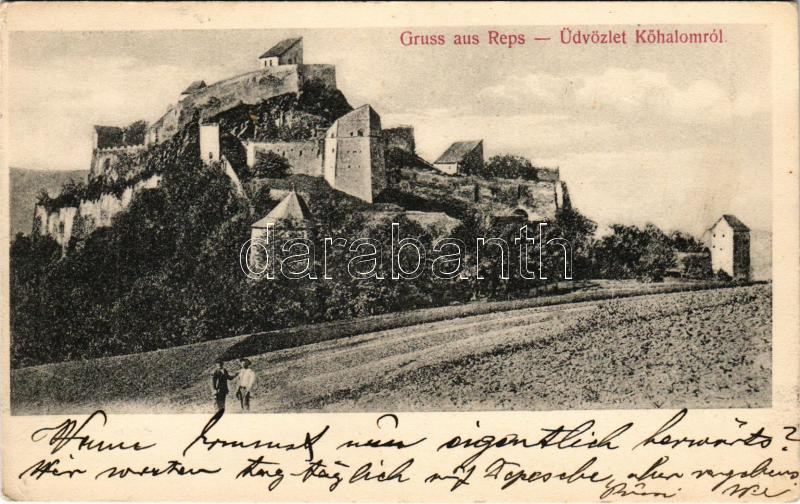 Gruss aus Reps — Üdvözlet Kőhalomról.
darabanth
Wann kommst nun eigentlich herwärts?
Wir warten tag täglich auf Depesche, aber vergebens.